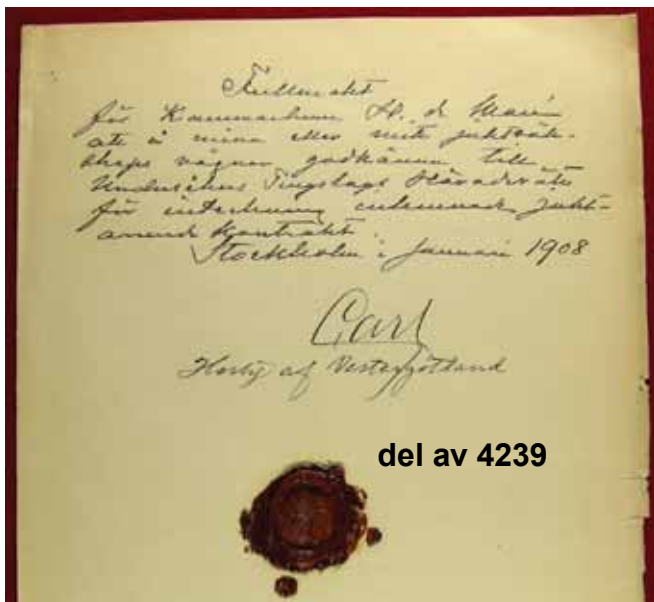 Fullmakt
för Kammarherrn H. de Maré
att å mina eller mitt jaktsäll-
skaps vägnar godkänna till
Tingslags Häradsrätt
för inteckning jakt-
arrende kontrakt.
Stockholm i januari 1908
Carl
Hertig af Vestergötland
del av 4239